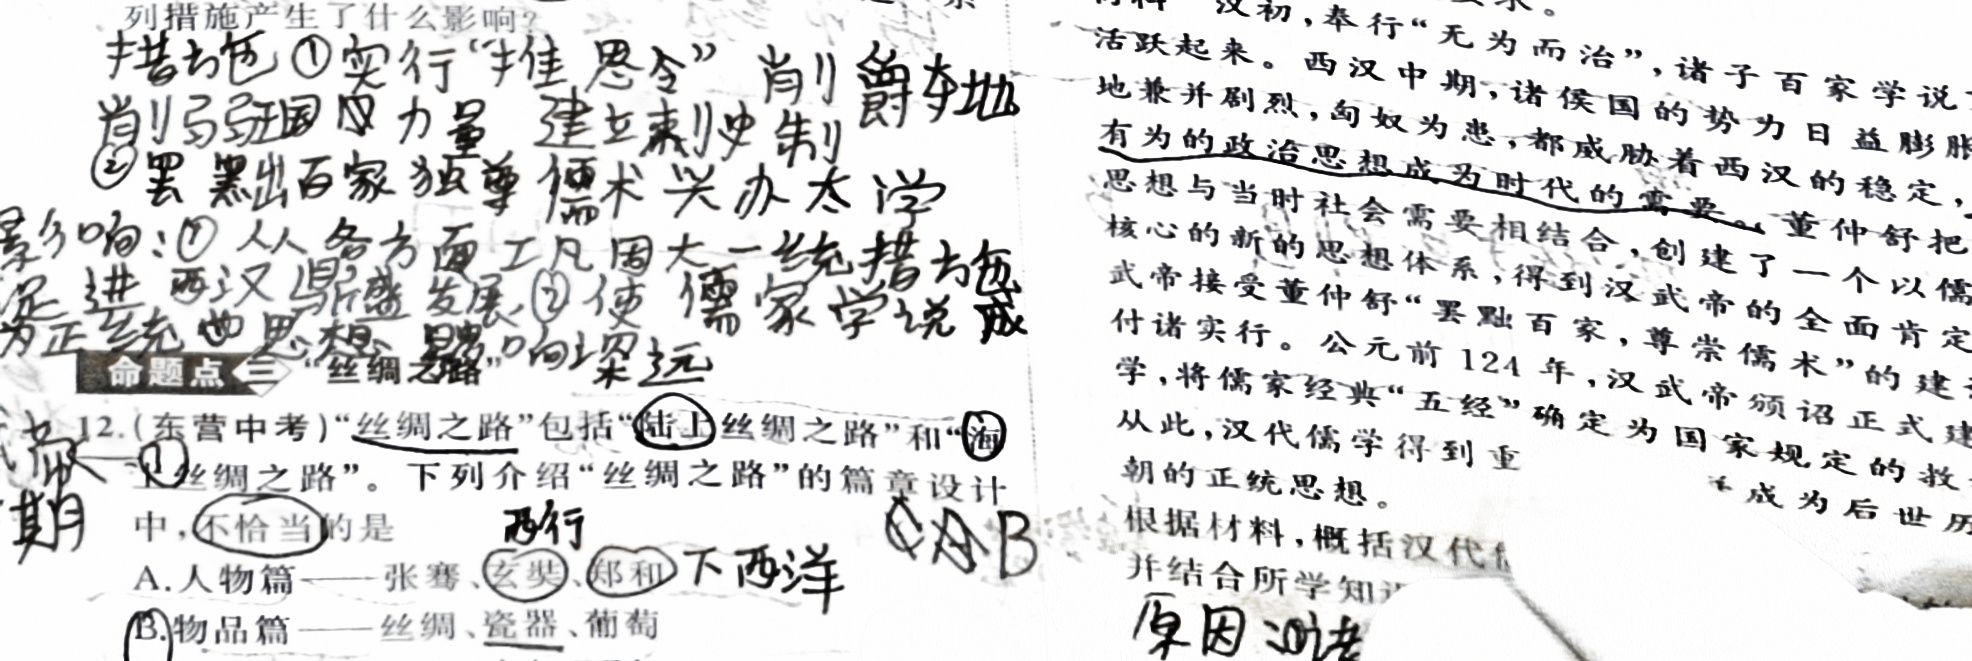 列措施产生了什么影响?
措施①实行“推恩令” 削爵夺地
削弱王国 力量 建立刺史制
②罢黜百家独尊儒术兴办太学
影响:①从各方面巩固大一统措施
促进西汉鼎盛发展,②使儒家学说成
为正统思想 影响深远
命题点三 “丝绸之路”
12.(东营中考)“丝绸之路”包括“陆上丝绸之路”和“海
上丝绸之路”。下列介绍“丝绸之路”的篇章设计
中,不恰当的是
期
B
西行
A.人物篇——张骞、玄奘、郑和
下西洋
B.物品篇——丝绸、瓷器、葡萄
汉初,奉行“无为而治”,诸子百家学说
活跃起来。西汉中期,诸侯国的势力日益膨胀
地兼并剧烈,匈奴为患,都威胁着西汉的稳定,
有为的政治思想成为时代的需要。董仲舒把
思想与当时社会需要相结合,创建了一个以儒
核心的新的思想体系,得到汉武帝的全面肯定
武帝接受董仲舒“罢黜百家,尊崇儒术”的建
付诸实行。公元前124年,汉武帝颁诏正式建
学,将儒家经典“五经”确定为国家规定的教
从此,汉代儒学得到重
成为后世历
朝的正统思想。
根据材料,概括汉代
并结合所学知
原因: